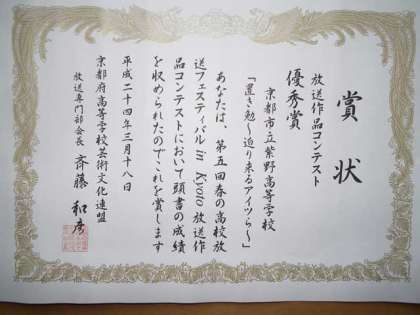 賞状
放送作品コンテスト
優秀賞
京都市立紫野高等学校
「置き勉～迫り来るアイツら～」
あなたは、第五回春の高校放
送フェスティバル in Kyoto 放送作
品コンテストにおいて頭書の成績
を収められたのでこれを賞します
平成二十四年三月十八日
京都府高等学校芸術文化連盟
放送専門部会長 斉藤 和彦